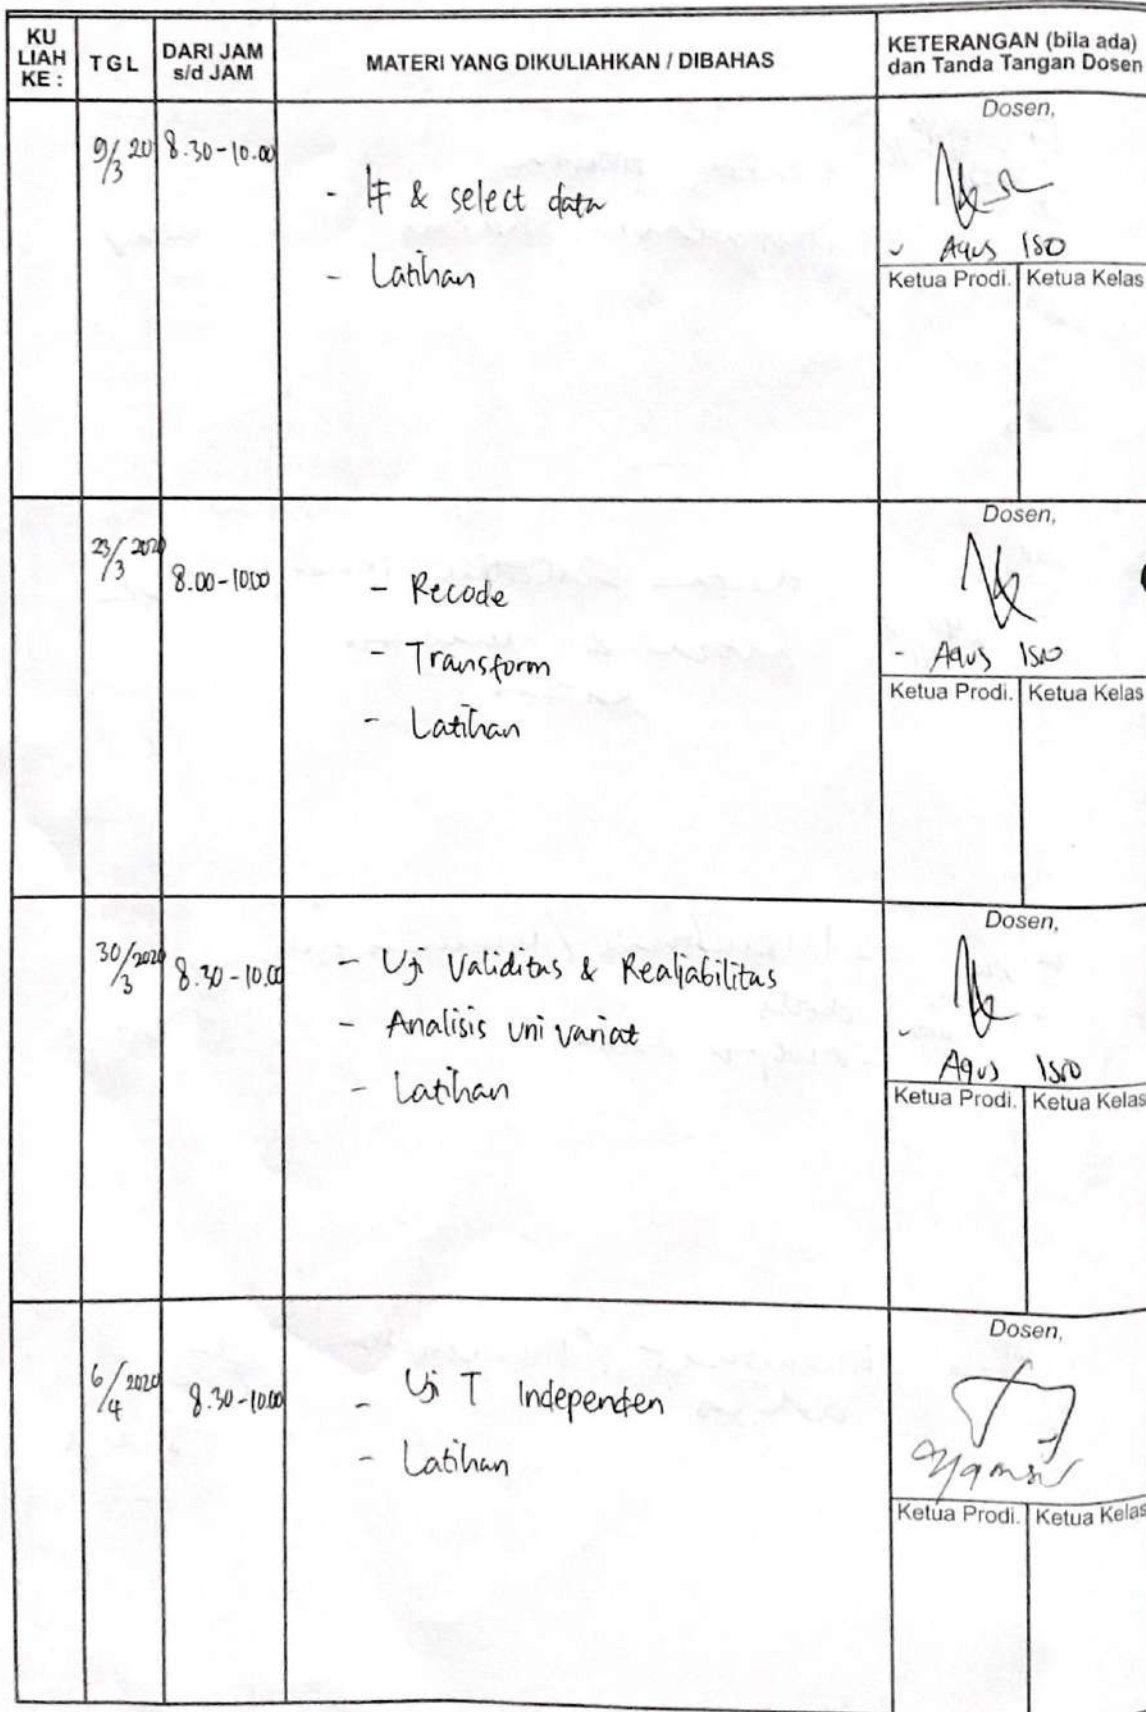 KU LIAH KE :
TGL
DARI JAM s/d JAM
MATERI YANG DIKULIAHKAN / DIBAHAS
KETERANGAN (bila ada) dan Tanda Tangan Dosen
9/3 20
8.30-10.00
- IF & select data
- Latihan
Dosen,
- Agus
Ketua Prodi.
Ketua Kelas
23/3 2020
8.00-10.00
- Recode
- Transform
- Latihan
Dosen,
- Agus
Ketua Prodi.
Ketua Kelas
30/3 2020
8.30-10.00
- Uji Validitas & Realjabilitas
- Analisis uni variat
- Latihan
Dosen,
- Agus
Ketua Prodi.
Ketua Kelas
6/4 2020
8.30-10.00
- Uji T Independen
- Latihan
Dosen,
Ketua Prodi.
Ketua Kelas